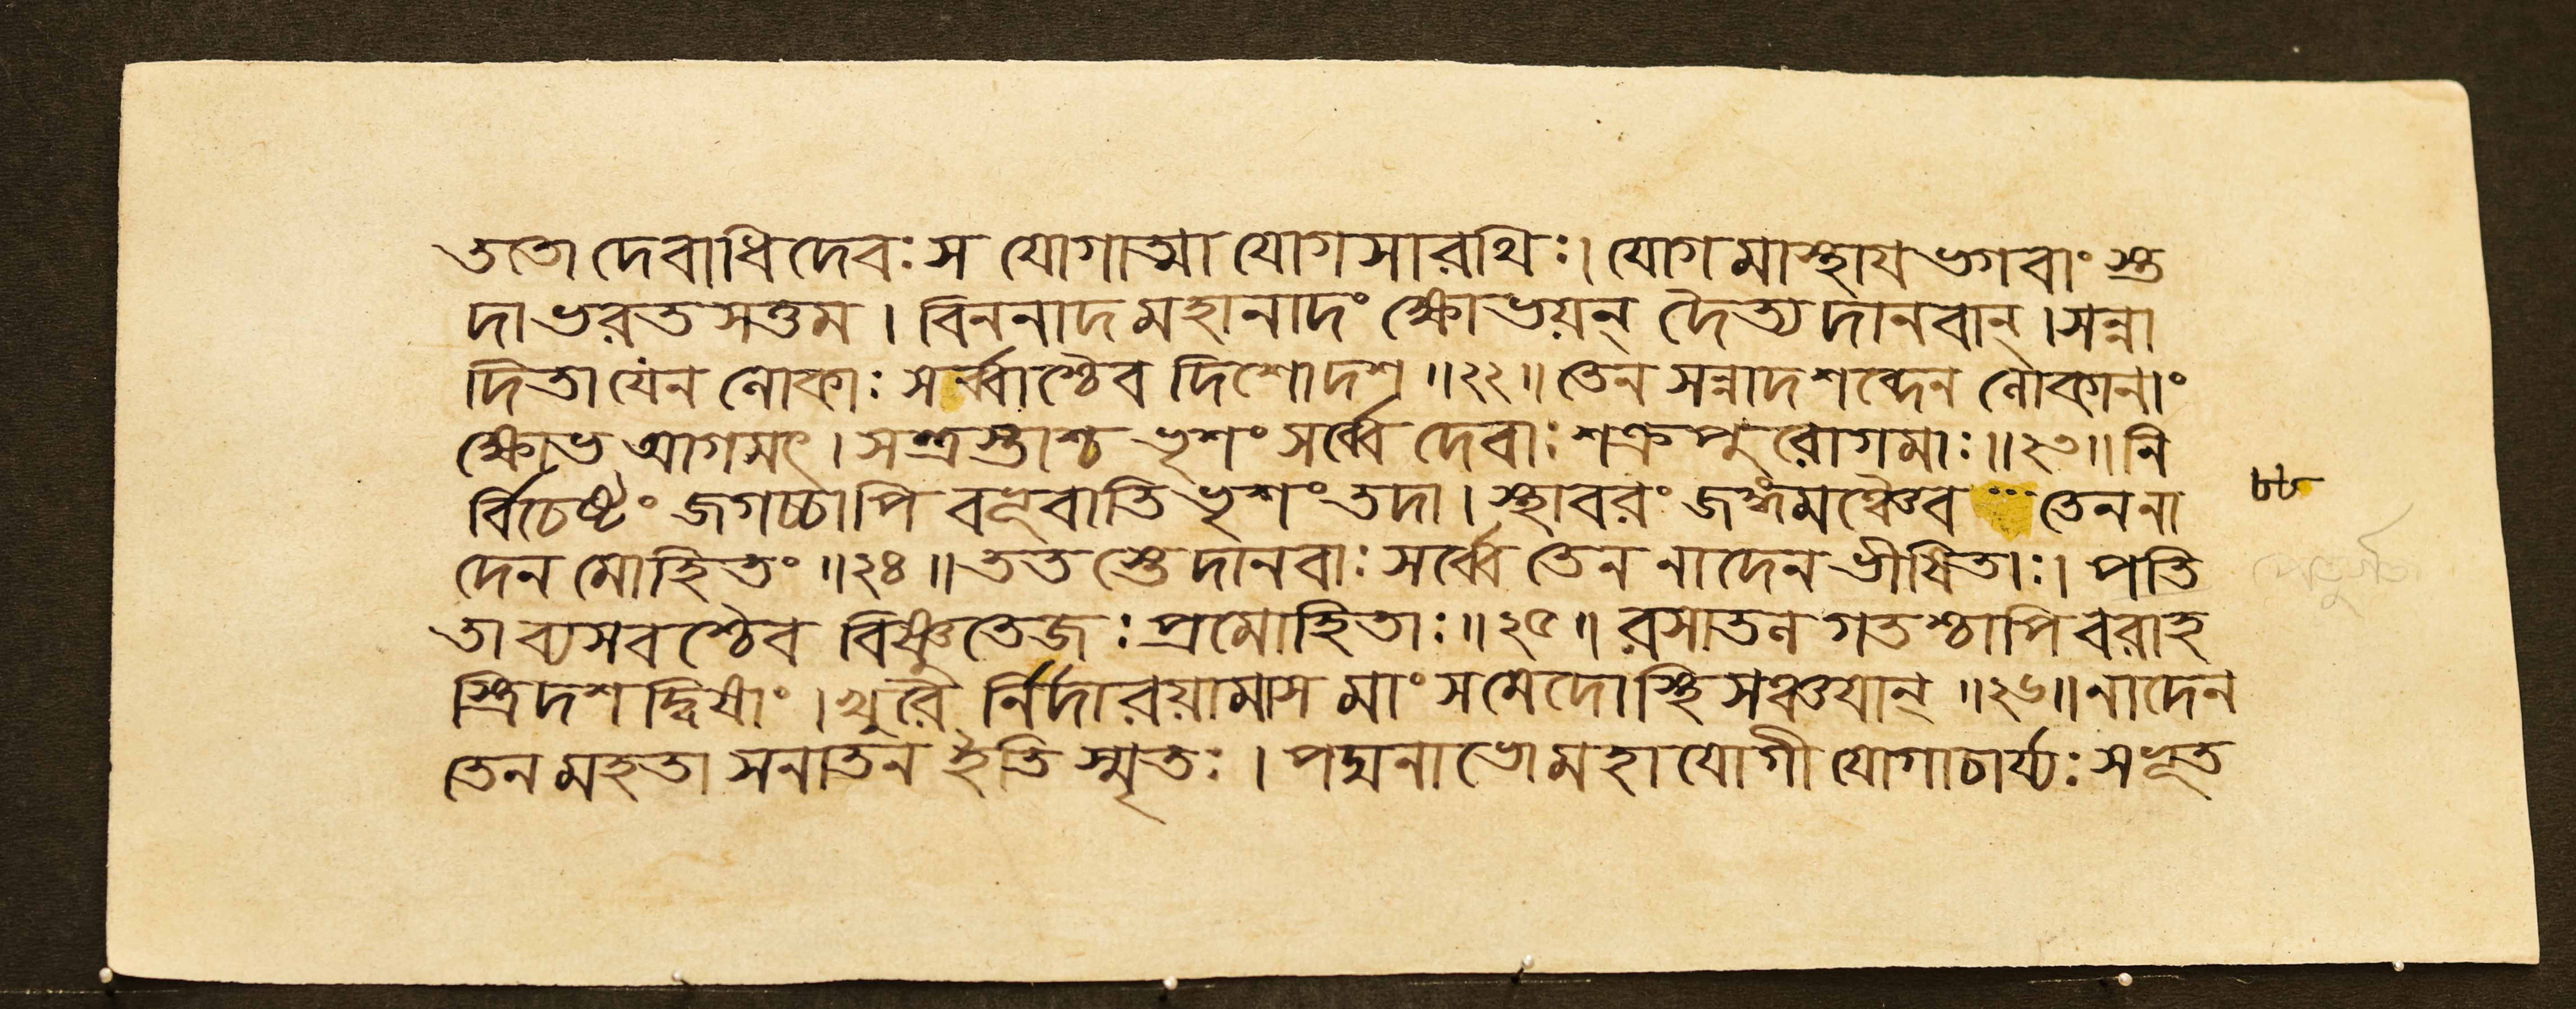 ততো দেবাধিদেবঃ স যোগাত্মা যোগসারথিঃ। যোগমাস্থায ভগবাং স্ত
দা ভরতসত্তম । বিননাদ মহানাদং ক্ষোভয়ন্ দৈত্যদানবান্ । সন্না
দিতা যেন লোকাঃ সর্ব্বাশ্চৈব দিশোদশ ॥২২॥ তেন সন্নাদশব্দেন লোকানাং
ক্ষোভ আগমৎ । সন্ত্রস্তাশ্চ ভৃশং সর্ব্বে দেবাঃ শক্রপুরোগমাঃ ॥২৩॥ নি
র্বিচেষ্টং জগচ্চাপি বভূবাতিভৃশং তদা । স্থাবরং জঙ্গমঞ্চৈব তেন না
দেন মোহিতং ॥২৪॥ ততস্তে দানবাঃ সর্ব্বে তেন নাদেন ভীষিতাঃ। পতি
তা ব্যসবশ্চৈব বিষ্ণুতেজঃ প্রমোহিতাঃ ॥২৫॥ রসাতল গতশ্চাপি বরাহ
স্ত্রিদশদ্বিষাং । খুরৈ র্নির্দারয়ামাস মাংসমেদোস্থিসঞ্চয়ান্ ॥২৬॥ নাদেন
তেন মহতা সনাতন ইতি স্মৃতঃ । পদ্মনাভো মহাযোগী যোগাচার্য্যঃ সভূত
৮৮